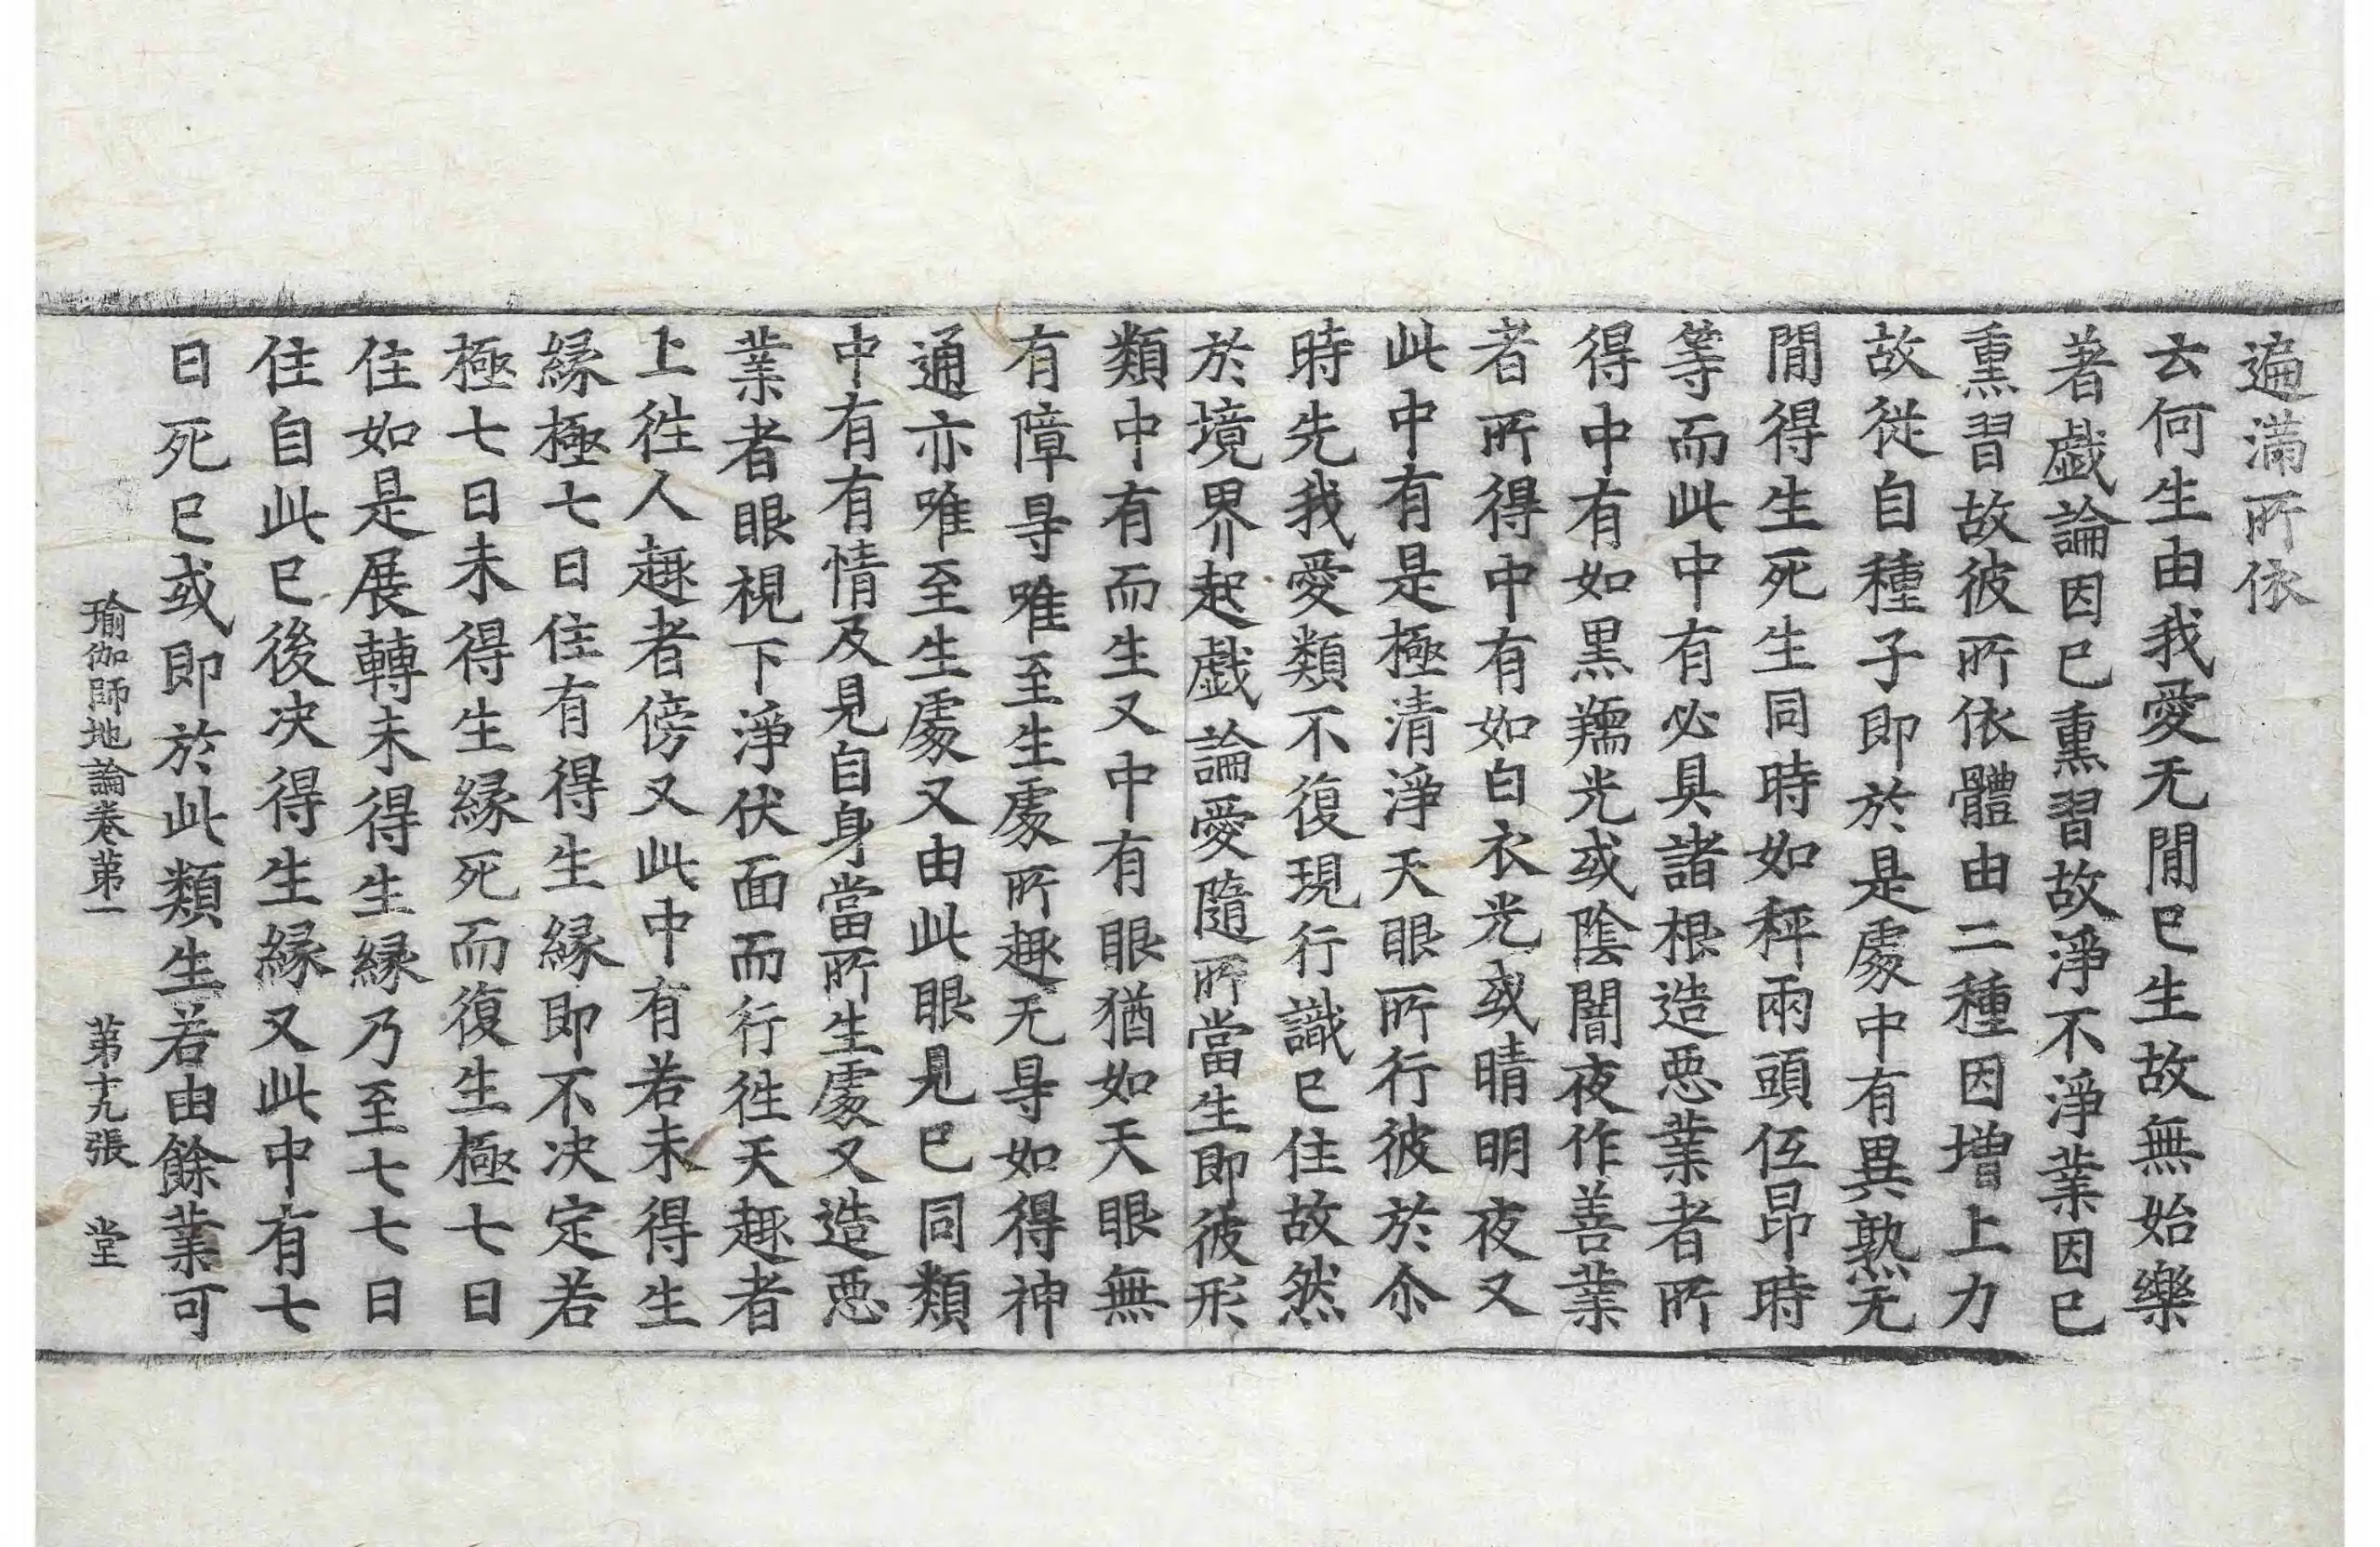 遍滿所依
云何生由我愛无閒已生故無始樂
著戲論因已熏習故淨不淨業因已
熏習故彼所依體由二種因增上力
故從自種子即於是處中有異熟无
閒得生死生同時如秤兩頭伍昂時
等而此中有必具諸根造惡業者所
得中有如黑羺光或陰闇夜作善業
者所得中有如白衣光或晴明夜又
此中有是極清淨天眼所行彼於尒
時先我愛類不復現行識已住故然
於境界起戲論愛隨所當生即彼形
類中有而生又中有眼猶如天眼無
有障㝵唯至生處所趣无㝵如得神
通亦唯至生處又由此眼見已同類
中有有情及見自身當所生處又造惡
業者眼視下淨伏面而行徃天趣者
上徃人趣者傍又此中有若未得生
緣極七日住有得生緣即不决定若
極七日未得生緣死而復生極七日
住如是展轉未得生緣乃至七七日
住自此已後决得生緣又此中有七
日死已或即於此類生若由餘業可
瑜伽師地論卷苐一　苐十九張　堂